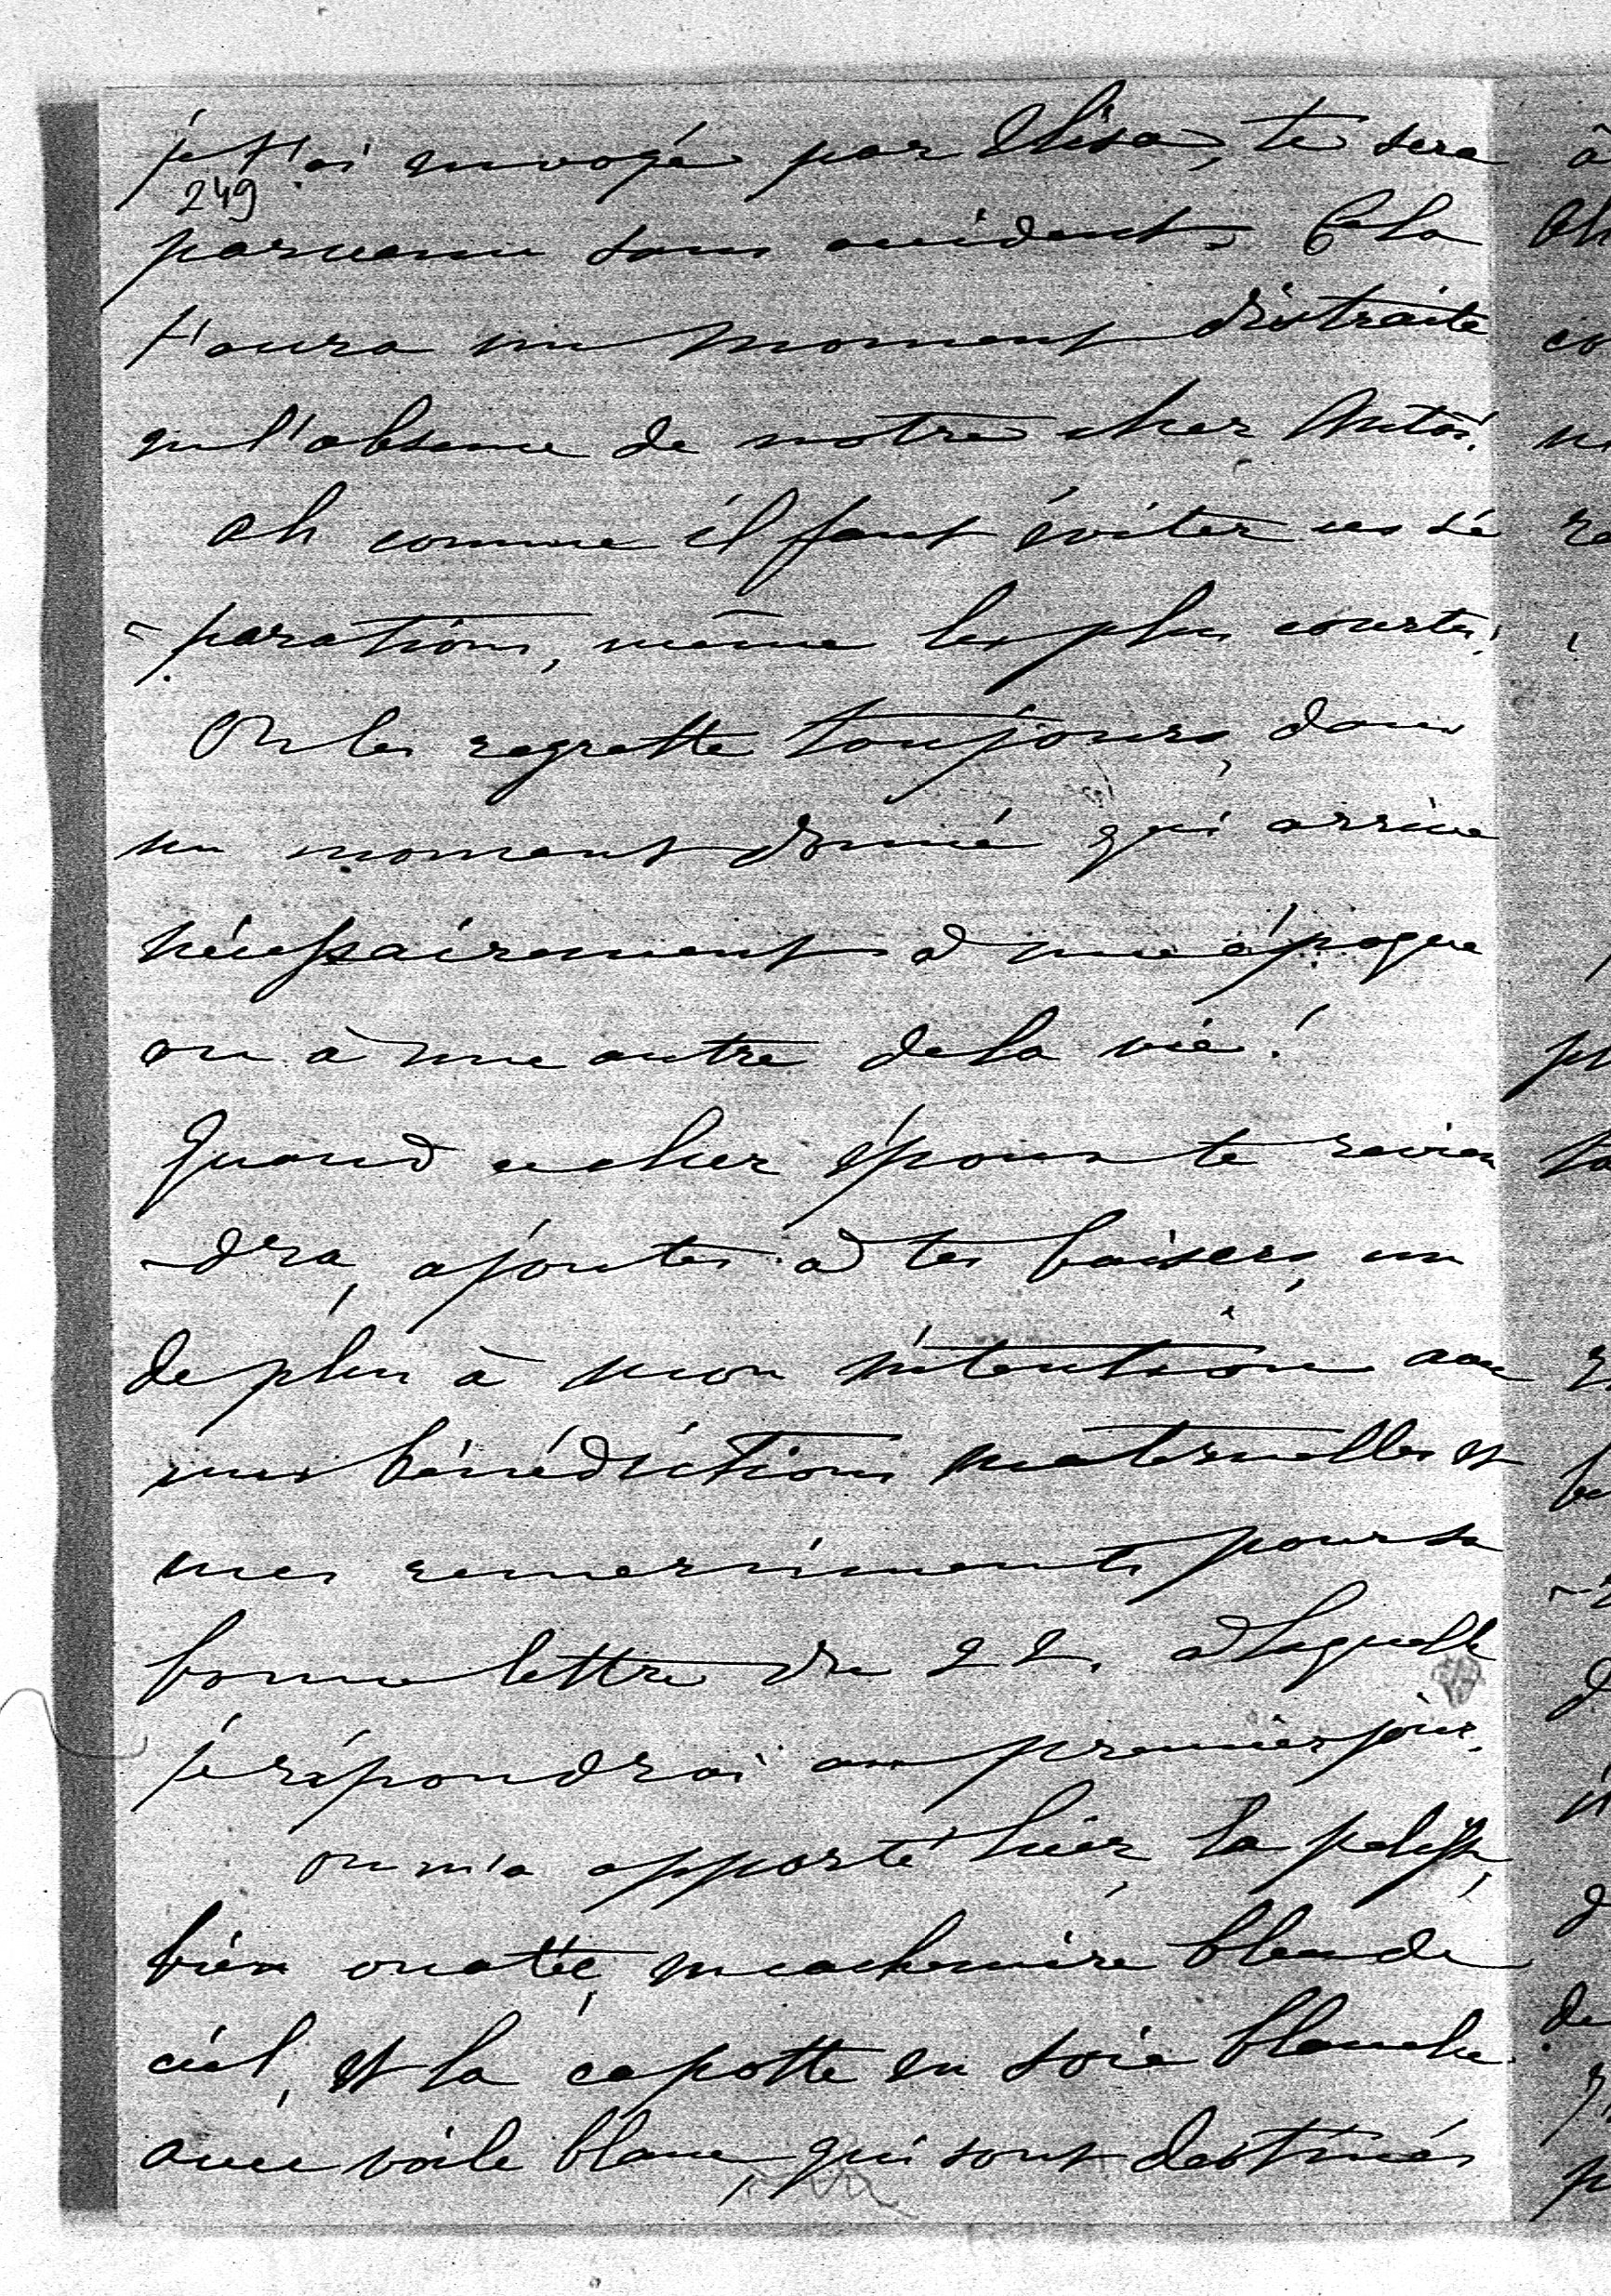 je t'ai envoyé par Elisa, te sera
249
parvenu sans accident. Cela
t'aura un moment distraite
en l'absence de notre cher Antoi.
Oh comme il faut éviter ces sé
-parations, même les plus courtes!
On les regrette toujours, dans
un moment donné qui arrive
nécessairement à une époque
ou à une autre de la vie!
Quand ce cher époux te revien
-dra, ajoutes à tes baisers, un
de plus à mon intention avec
mes bénédictions maternelles et
mes remerciments pour sa
bonne lettre du 22. à laquelle
je répondrai au premier jour.
on m'a apporté hier, la pelisse,
bien ouatée, en cachemire bleu de
ciel, et la capotte en soie blanche
avec voile blanc, qui sont destinés